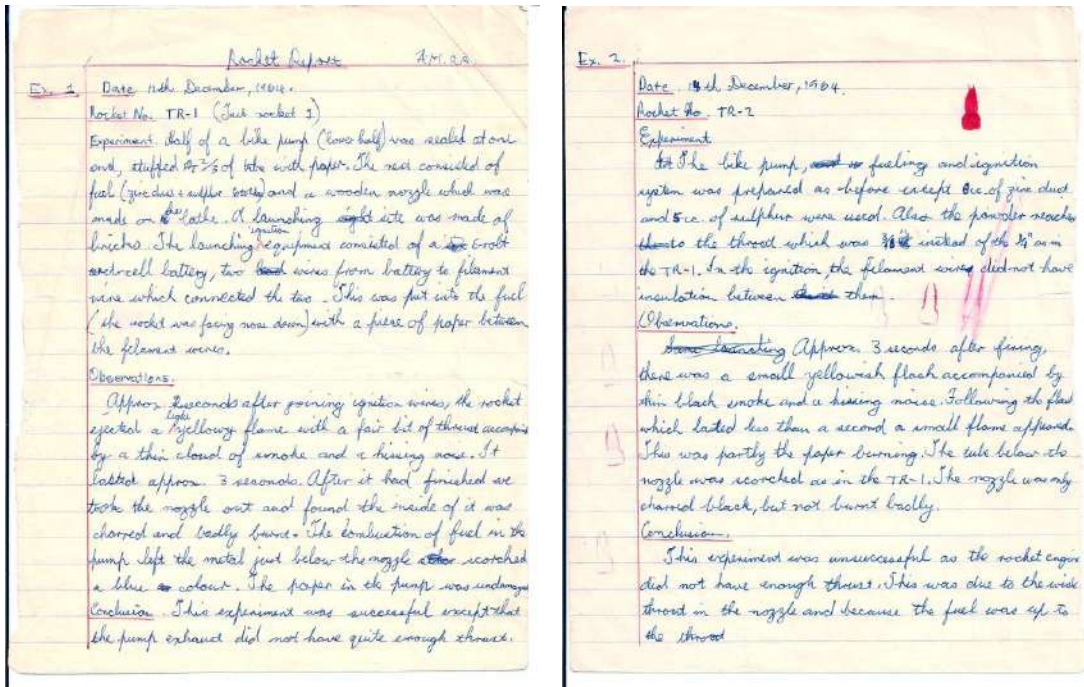 Rocket Report
Ex. 1 Date 11th December, 1964.
Rocket No. TR-1 (Test rocket 1)
Experiment. Half of a bike pump (lower half) was sealed at one
end, stuffed 2/3 of tube with paper. The rest consisted of
fuel (zinc dust + sulphur) and a wooden nozzle which was
made on the lathe. A launching site was made of
bricks. The launching ignition equipment consisted of a 6-volt
battery, two wires from battery to filament
wire which connected the two. This was put into the fuel
(the rocket was facing nose down) with a piece of paper between
the filament wires.
Observations.
Approx. 2 seconds after joining ignition wires, the rocket
ejected a light yellowy flame with a fair bit of thrust
by a thin cloud of smoke and a hissing noise. It
lasted approx. 3 seconds. After it had finished we
took the nozzle out and found the inside of it was
charred and badly burnt. The combustion of fuel in the
pump left the metal just below the nozzle scorched
a blue colour. The paper in the pump was undamaged
Conclusion. This experiment was successful except that
the pump exhaust did not have quite enough thrust.
Ex. 2.
Date. 11th December, 1964.
Rocket No. TR-2
Experiment
The bike pump, fueling and ignition
system was prepared as before except 8cc. of zinc dust
and 5cc. of sulphur were used. Also the powder reached
to the throat which was instead of the 1/4" as in
the TR-1. In the ignition, the filament wires did not have
insulation between them.
Observations.
Approx. 3 seconds after firing,
there was a small yellowish flash accompanied by
thin black smoke and a hissing noise. Following the flash
which lasted less than a second a small flame appeared.
This was partly the paper burning. The tube below the
nozzle was scorched as in the TR-1. The nozzle was only
charred black, but not burnt badly.
Conclusion.
This experiment was unsuccessful as the rocket engine
did not have enough thrust. This was due to the wide
throat in the nozzle and because the fuel was up to
the throat